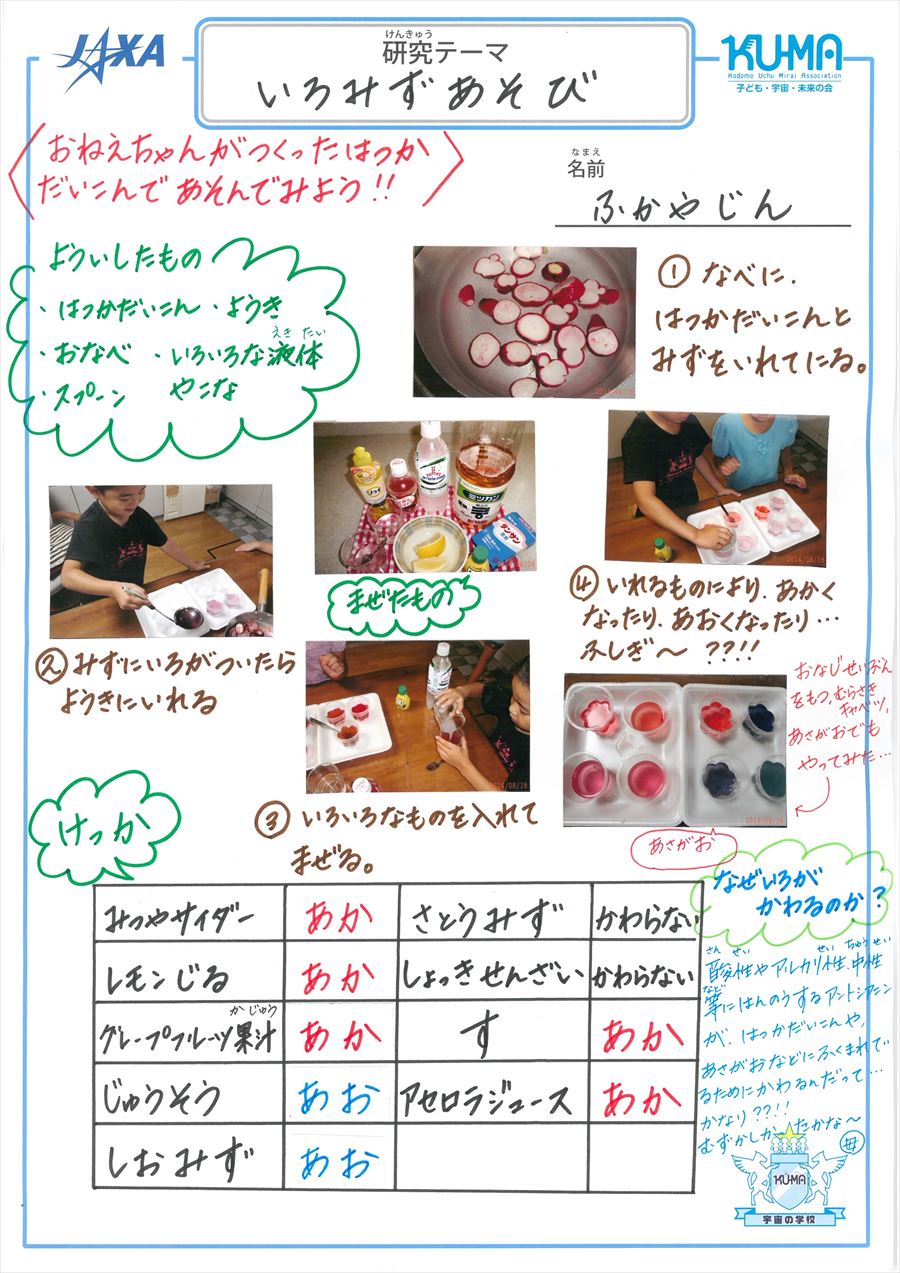 JAXA
けんきゅう
研究テーマ
いろみずあそび
KU-MA
Kodomo Uchu Mirai Association
子ども・宇宙・未来の会
おねえちゃんがつくったはつか
だいこんで あそんでみよう!!
なまえ
名前
ふかやじん
よういしたもの
・はつかだいこん ・ようき
えき たい
・おなべ ・いろいろな液体
・スプーン やこな
① なべに、
はつかだいこんと
みずをいれてにる。
2014/08/16
ミツカン
酢
タンサン
まぜたもの
2014/08/16
② みずにいろがついたら
ようきにいれる
④ いれるものにより、あかく
なったり、あおくなったり…
ふしぎ〜 ??!!
③ いろいろなものを入れて
まぜる。
2014/08/16
おなじせいぶん
をもつ、むらさき
キャベツ、
あさがおでも
やってみた…
2014/08/16
あさがお
けっか
みつやサイダー あか さとうみず かわらない
レモンじる あか しょっきせんざい かわらない
かじゅう
グレープフルーツ果汁 あか す あか
じゅうそう あお アセロラジュース あか
しおみず あお
なぜいろが
かわるのか?
さん せい せい ちゅうせい
酸性やアルカリ性、中性
など
等にはんのうするアントシアニン
が、はつかだいこんや、
あさがおなどにふくまれてい
るためにかわるんだって…
かなり??!!
むずかしかったかな〜
母
KU-MA
宇宙の学校